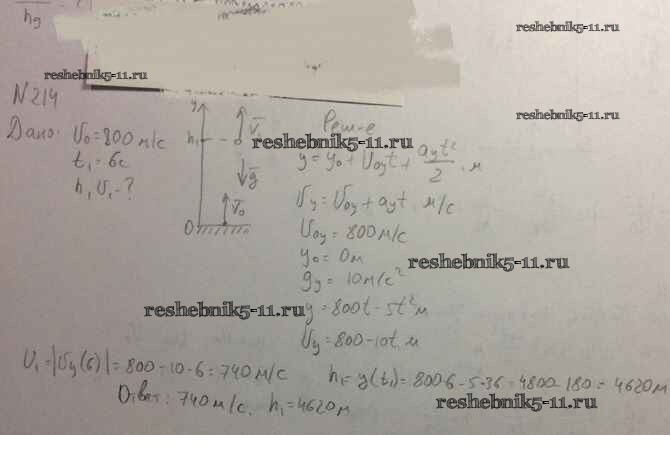 hg
reshebnik5-11.ru
reshebnik5-11.ru
N214
reshebnik5-11.ru
Дано:
V₀=800 м/с
t₁=6с
h₁ V₁-?
y
h₁
V₁
g
V₀
0
Реш-е
reshebnik5-11.ru
y=y₀+V₀yt+ayt²/2, м
Vy=V₀y+ayt м/с
V₀y=800м/с
y₀=0м
reshebnik5-11.ru
gy=10м/с²
reshebnik5-11.ru
y=800t-5t² м
Vy=800-10t м
V₁=|Vy(6)|=800-10·6=740 м/с
h₁=y(t₁)=800·6-5·36=4800-180=4620м
Ответ: 740 м/с, h₁=4620м
reshebnik5-11.ru